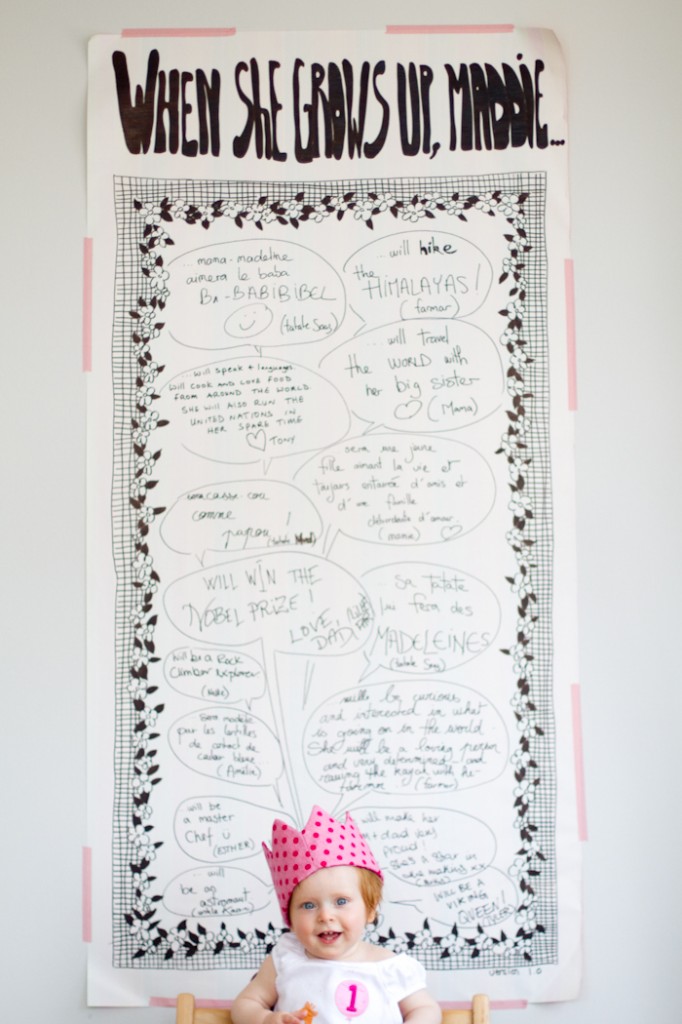 WHEN SHE GROWS UP, MADDIE...
... mama-madeline
aimera le baba
BA-BABIBIBEL
(tatate Soy)
... will hike
the
HIMALAYAS!
(farmar)
... will travel
the WORLD with
her big sister
(Mama)
will speak 4 languages.
will COOK AND LOVE FOOD
FROM AROUND THE WORLD.
SHE WILL ALSO RUN THE
UNITED NATIONS IN
HER SPARE TIME
TONY
sera une jeune
fille aimant la vie et
toujours entourée d'amis et
d'une famille
débordante d'amour.
(mama)
cou
comme
papou!
WILL WIN THE
NOBEL PRIZE!
LOVE,
DAD
sa tatate
lui fera des
MADELEINES
(tatate Soy)
will be a Rock
Climber explorer
sera modèle
par les lentilles
de contact de
couleur
(Amélia)
will be curious
and interested in what
is going on in the world.
She will be a loving person
and very determined and
the kayak with
farmor
will be
a master
Chef
(ESTHER)
will make her
+ dad very
proud!
She's a star in
the making xx
... will
be an
astronaut
WILL BE A
VIKING
QUEEN!
1
version 1.0